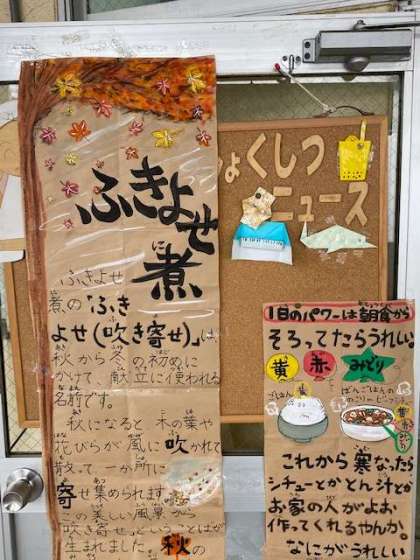 ょくしつ
ニュース
ふきよせ
煮
に
ふきよせ
煮の「ふき
よせ(吹き寄せ)」は、
秋から冬の初めに
かけて、献立に使われる
名前です。
秋になると 木の葉や
花びらが 風に吹かれて
散って 一か所に
寄せ集められます。
の美しい風景から
吹き寄せということばが
生まれました。
秋の
1日のパワーは朝食から
そろってたらうれしい
黄 赤 みどり
ごはん
ばんごはんの
のこり
これから 寒なったら
シチューとか とん汁とか
お家の人がよお
作ってくれるやんか。
なにがうれしい